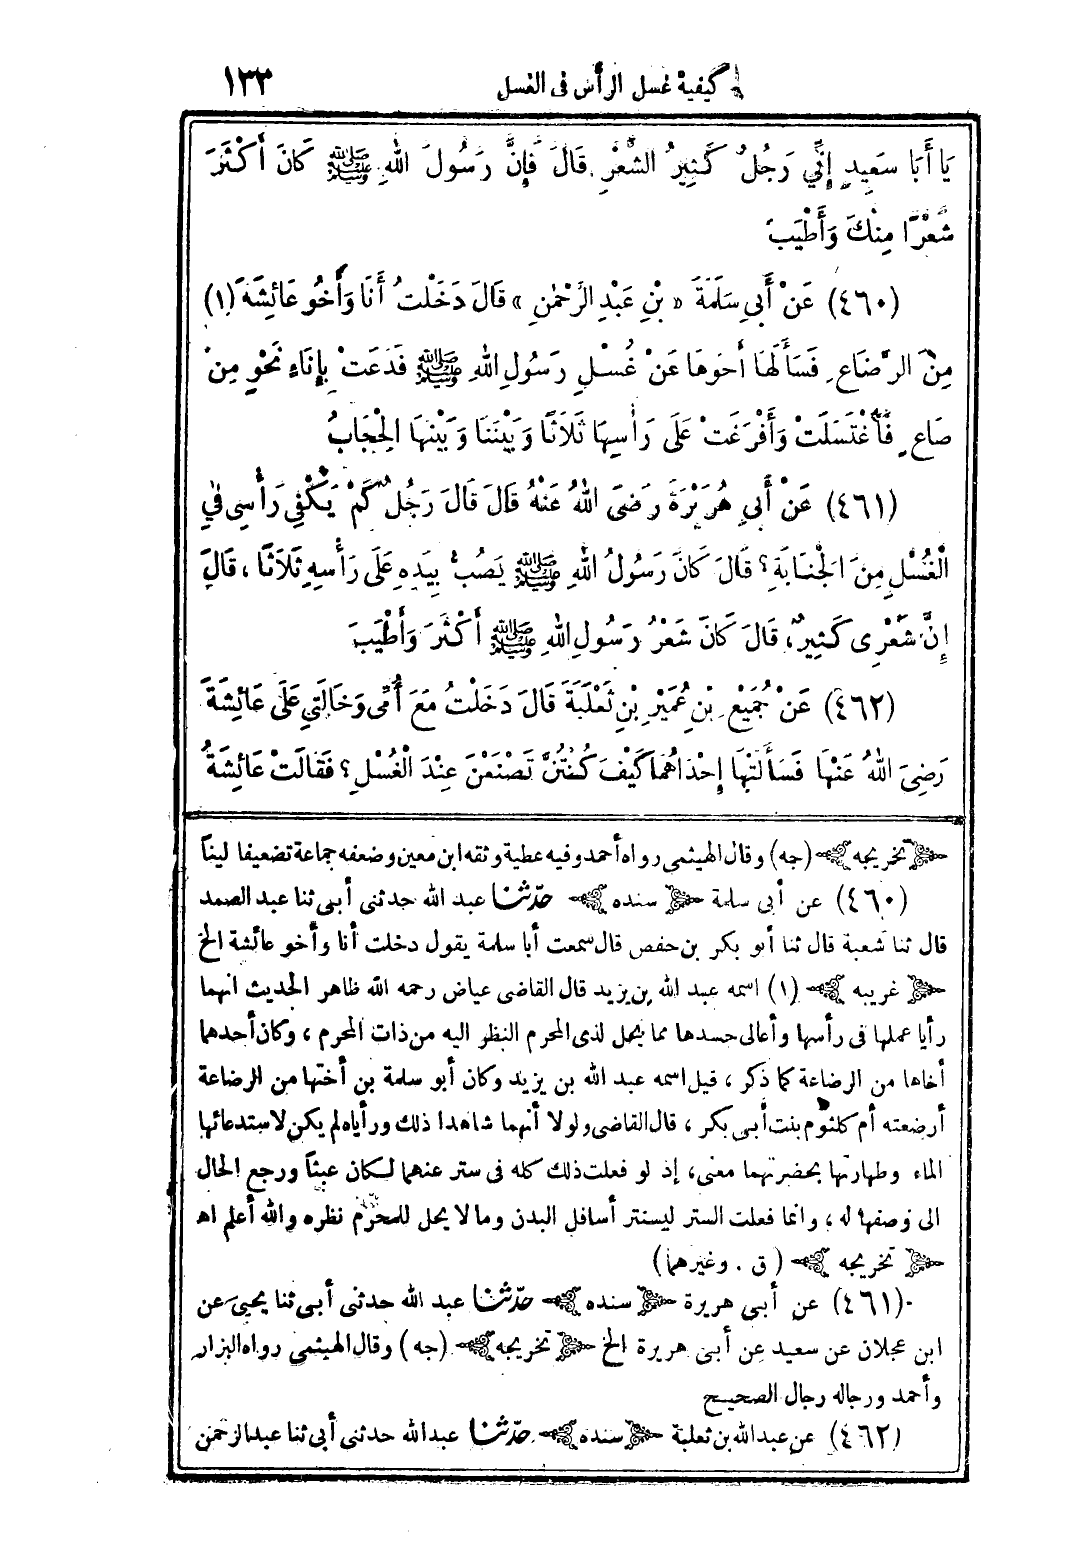 كيفية غسل الرأس فى الغسل ١٣٣
يَا أَبَا سَعِيدٍ إِنِّي رَجُلٌ كَثِيرُ الشَّعْرِ قَالَ فَإِنَّ رَسُولَ اللهِ ﷺ كَانَ أَكْثَرَ
شَعْرًا مِنْكَ وَأَطْيَبَ
(٤٦٠) عَنْ أَبِي سَلَمَةَ «بْنِ عَبْدِ الرَّحْمٰنِ» قَالَ دَخَلْتُ أَنَا وَأَخُو عَائِشَةَ (١)
مِنَ الرَّضَاعِ فَسَأَلَهَا أَخُوهَا عَنْ غُسْلِ رَسُولِ اللهِ ﷺ فَدَعَتْ بِإِنَاءٍ نَحْوٍ مِنْ
صَاعٍ فَاغْتَسَلَتْ وَأَفْرَغَتْ عَلَى رَأْسِهَا ثَلَاثًا وَبَيْنَنَا وَبَيْنَهَا الْحِجَابُ
(٤٦١) عَنْ أَبِي هُرَيْرَةَ رَضِيَ اللهُ عَنْهُ قَالَ قَالَ رَجُلٌ كَمْ يَكْفِي رَأْسِي فِي
الْغُسْلِ مِنَ الْجَنَابَةِ؟ قَالَ كَانَ رَسُولُ اللهِ ﷺ يَصُبُّ بِيَدِهِ عَلَى رَأْسِهِ ثَلَاثًا، قَالَ
إِنَّ شَعْرِى كَثِيرٌ، قَالَ كَانَ شَعْرُ رَسُولِ اللهِ ﷺ أَكْثَرَ وَأَطْيَبَ
(٤٦٢) عَنْ جُمَيْعِ بْنِ عُمَيْرِ بْنِ ثَعْلَبَةَ قَالَ دَخَلْتُ مَعَ أُمِّى وَخَالَتِي عَلَى عَائِشَةَ
رَضِيَ اللهُ عَنْهَا فَسَأَلَتْهَا إِحْدَاهُمَا كَيْفَ كُنْتُنَّ تَصْنَعْنَ عِنْدَ الْغُسْلِ؟ فَقَالَتْ عَائِشَةُ
تخريجه (جه) وقال الهيثمى رواه أحمد وفيه عطية وثقه ابن معين وضعفه جماعة تضعيفا لينًا
(٤٦٠) عن أبى سلمة سنده حدّثنا عبد الله حدثنى أبى ثنا عبد الصمد
قال ثنا شعبة قال ثنا أبو بكر بن حفص قال سمعت أبا سلمة يقول دخلت أنا وأخو عائشة الخ
غريبه (١) اسمه عبد الله بن يزيد قال القاضى عياض رحمه الله ظاهر الحديث انهما
رأيا عملها فى رأسها وأعالى جسدها مما يحل لذى المحرم النظر اليه من ذات المحرم، وكان أحدهما
أخاها من الرضاعة كما ذكر، قيل اسمه عبد الله بن يزيد وكان أبو سلمة بن أختها من الرضاعة
أرضعته أم كلثوم بنت أبى بكر، قال القاضى ولولا أنهما شاهدا ذلك ورأياه لم يكن لاستدعائها
الماء وطهارتها بحضرتهما معنى، إذ لو فعلت ذلك كله فى ستر عنهما لكان عبثًا ورجع الحال
الى وصفها له، وانما فعلت الستر ليستتر أسافل البدن وما لا يحل للمحرم نظره والله أعلم اه
تخريجه (ق. وغيرهما)
(٤٦١) عن أبى هريرة سنده حدّثنا عبد الله حدثنى أبى ثنا يحيى عن
ابن عجلان عن سعيد عن أبى هريرة الخ تخريجه (جه) وقال الهيثمى رواه البزار
وأحمد ورجاله رجال الصحيح
(٤٦٢) عن عبد الله بن ثعلبة سنده حدّثنا عبد الله حدثنى أبى ثنا عبد الرحمن